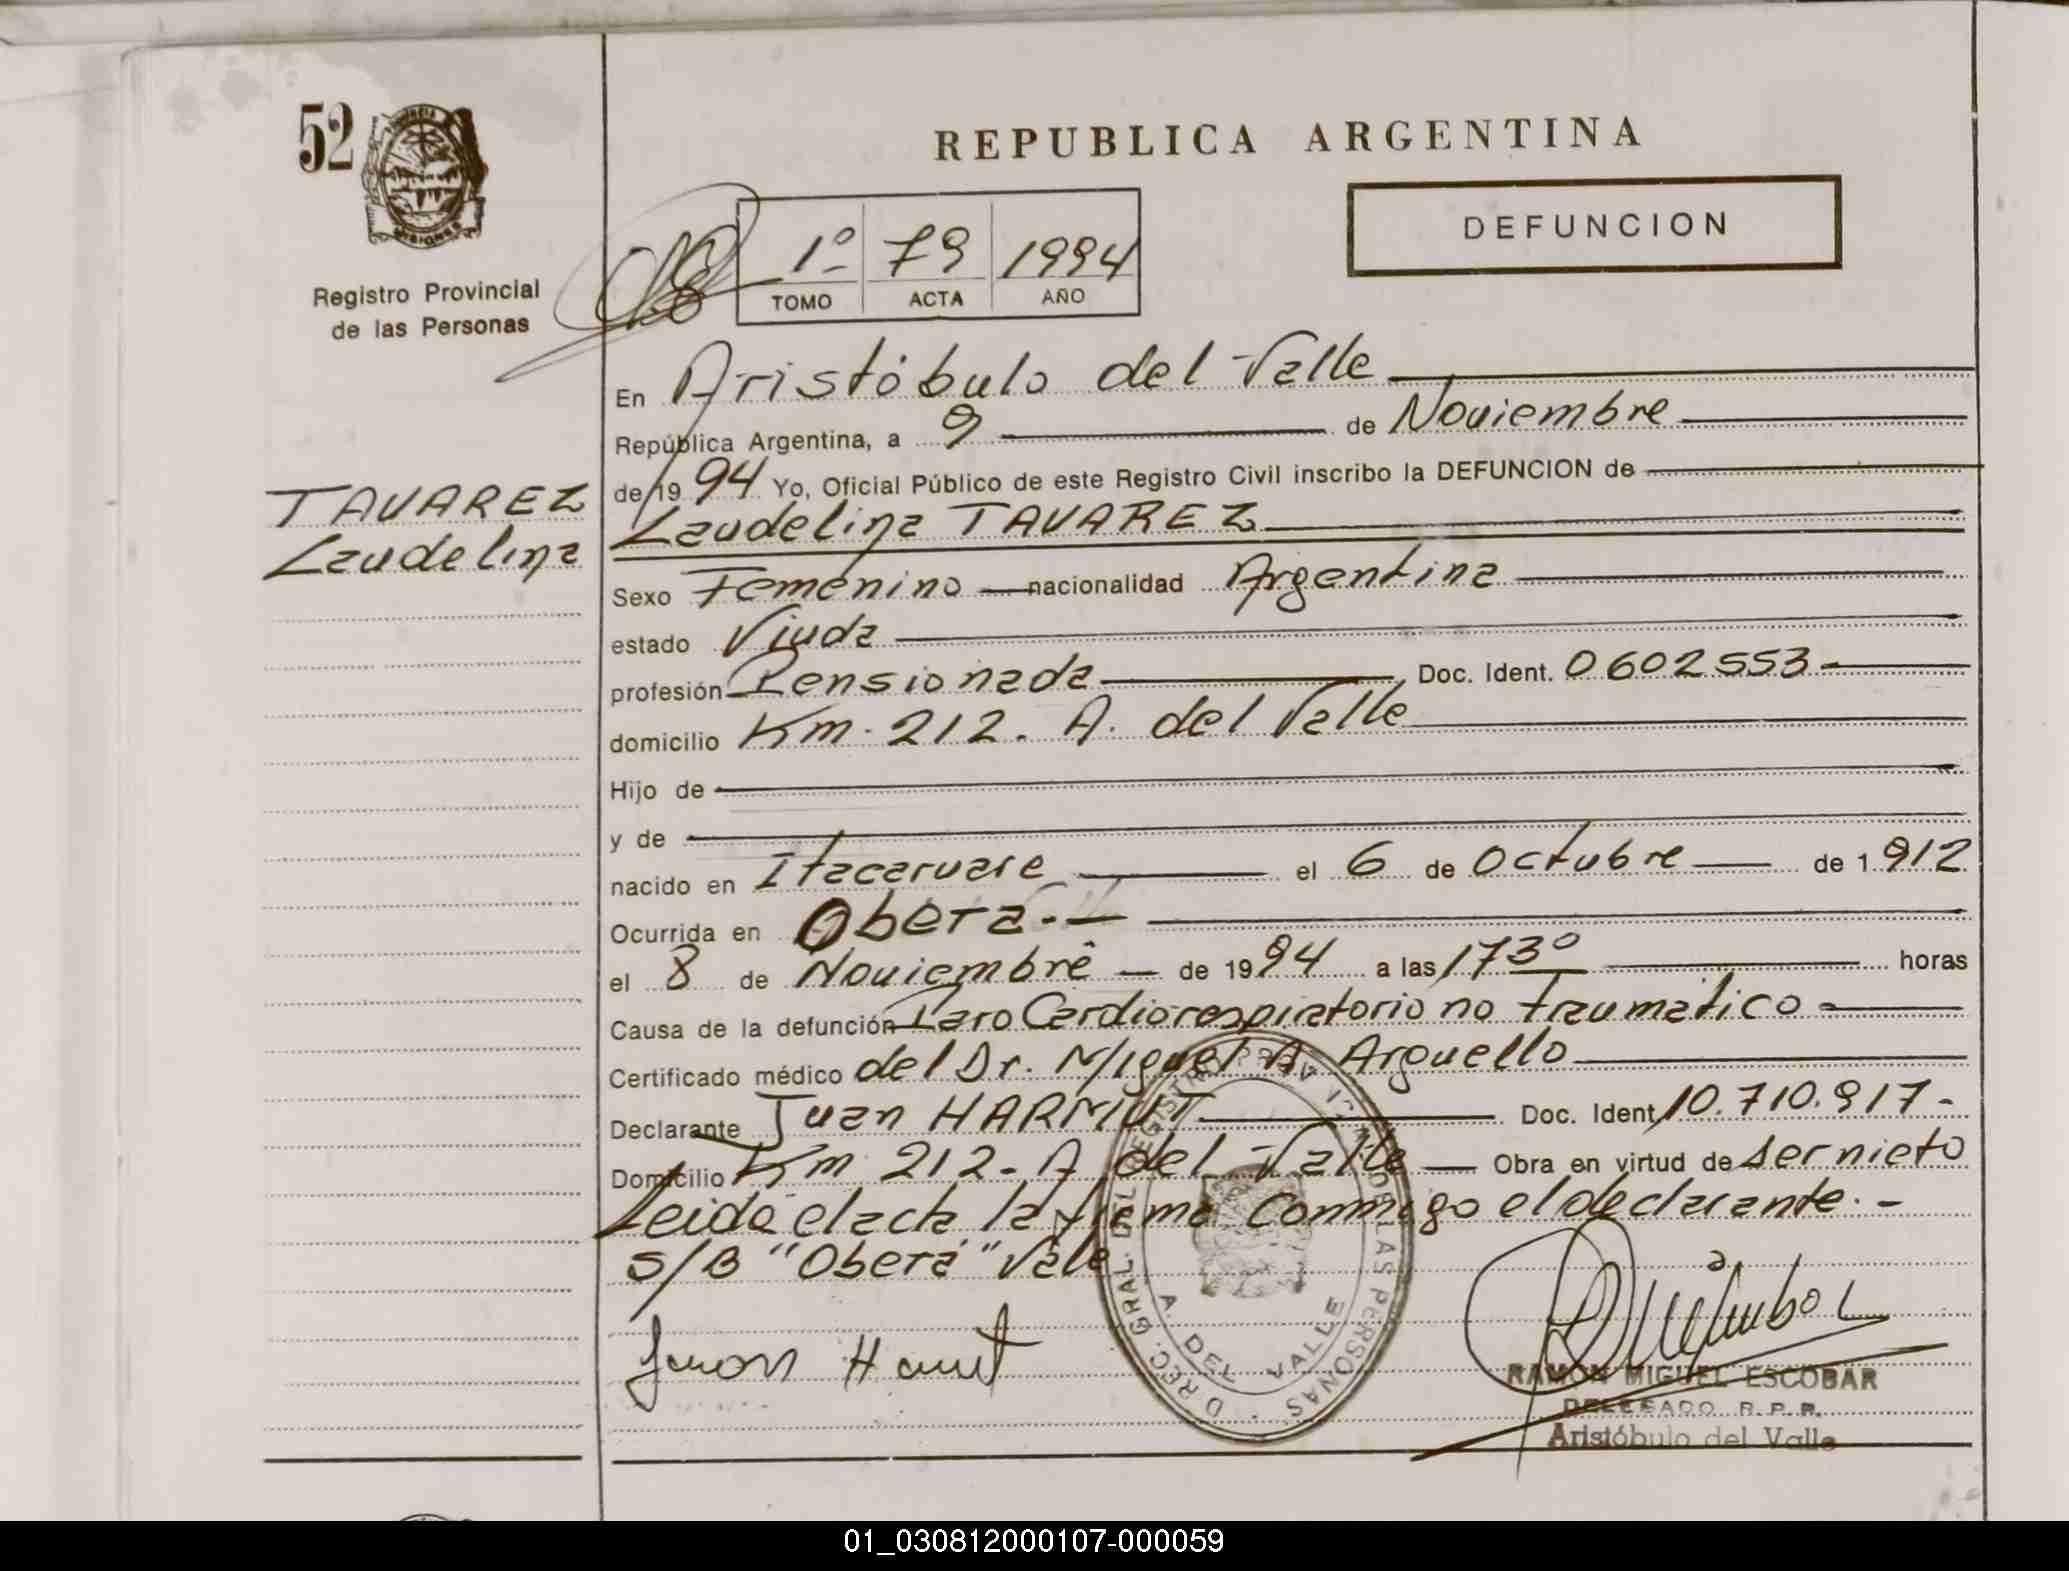 52
PROVINCIA
MISIONES
Registro Provincial
de las Personas
REPUBLICA ARGENTINA
DEFUNCION
1º 79 1994
TOMO ACTA AÑO
TAVAREZ
Laudelina
En Aristóbulo del Valle
República Argentina, a 9 de Noviembre
de 19 94 Yo, Oficial Público de este Registro Civil inscribo la DEFUNCION de
Laudelina TAVAREZ
Sexo Femenino nacionalidad Argentina
estado Viuda
profesión Pensionada Doc. Ident. 0602553
domicilio Km. 212. A. del Valle
Hijo de
y de
nacido en Itacaruare el 6 de Octubre de 1.912
Ocurrida en Obera.-
el 8 de Noviembre de 1994 a las 17 30 horas
Causa de la defunción Paro Cardiorespiratorio no traumatico
Certificado médico del Dr. Miguel A. Arguello
Declarante Juan HARMUT Doc. Ident 10.710.917-
Domicilio Km 212- A del Valle Obra en virtud de ser nieto
Leida el acta la firma Conmigo el declarante.-
S/B "Oberá" Vale
DIREC. GRAL. DEL REGISTRO PROVINCIAL DE LAS PERSONAS
A. DEL VALLE
RAMON MIGUEL ESCOBAR
DELEGADO R.P.P.
Aristóbulo del Valle
01_030812000107-000059